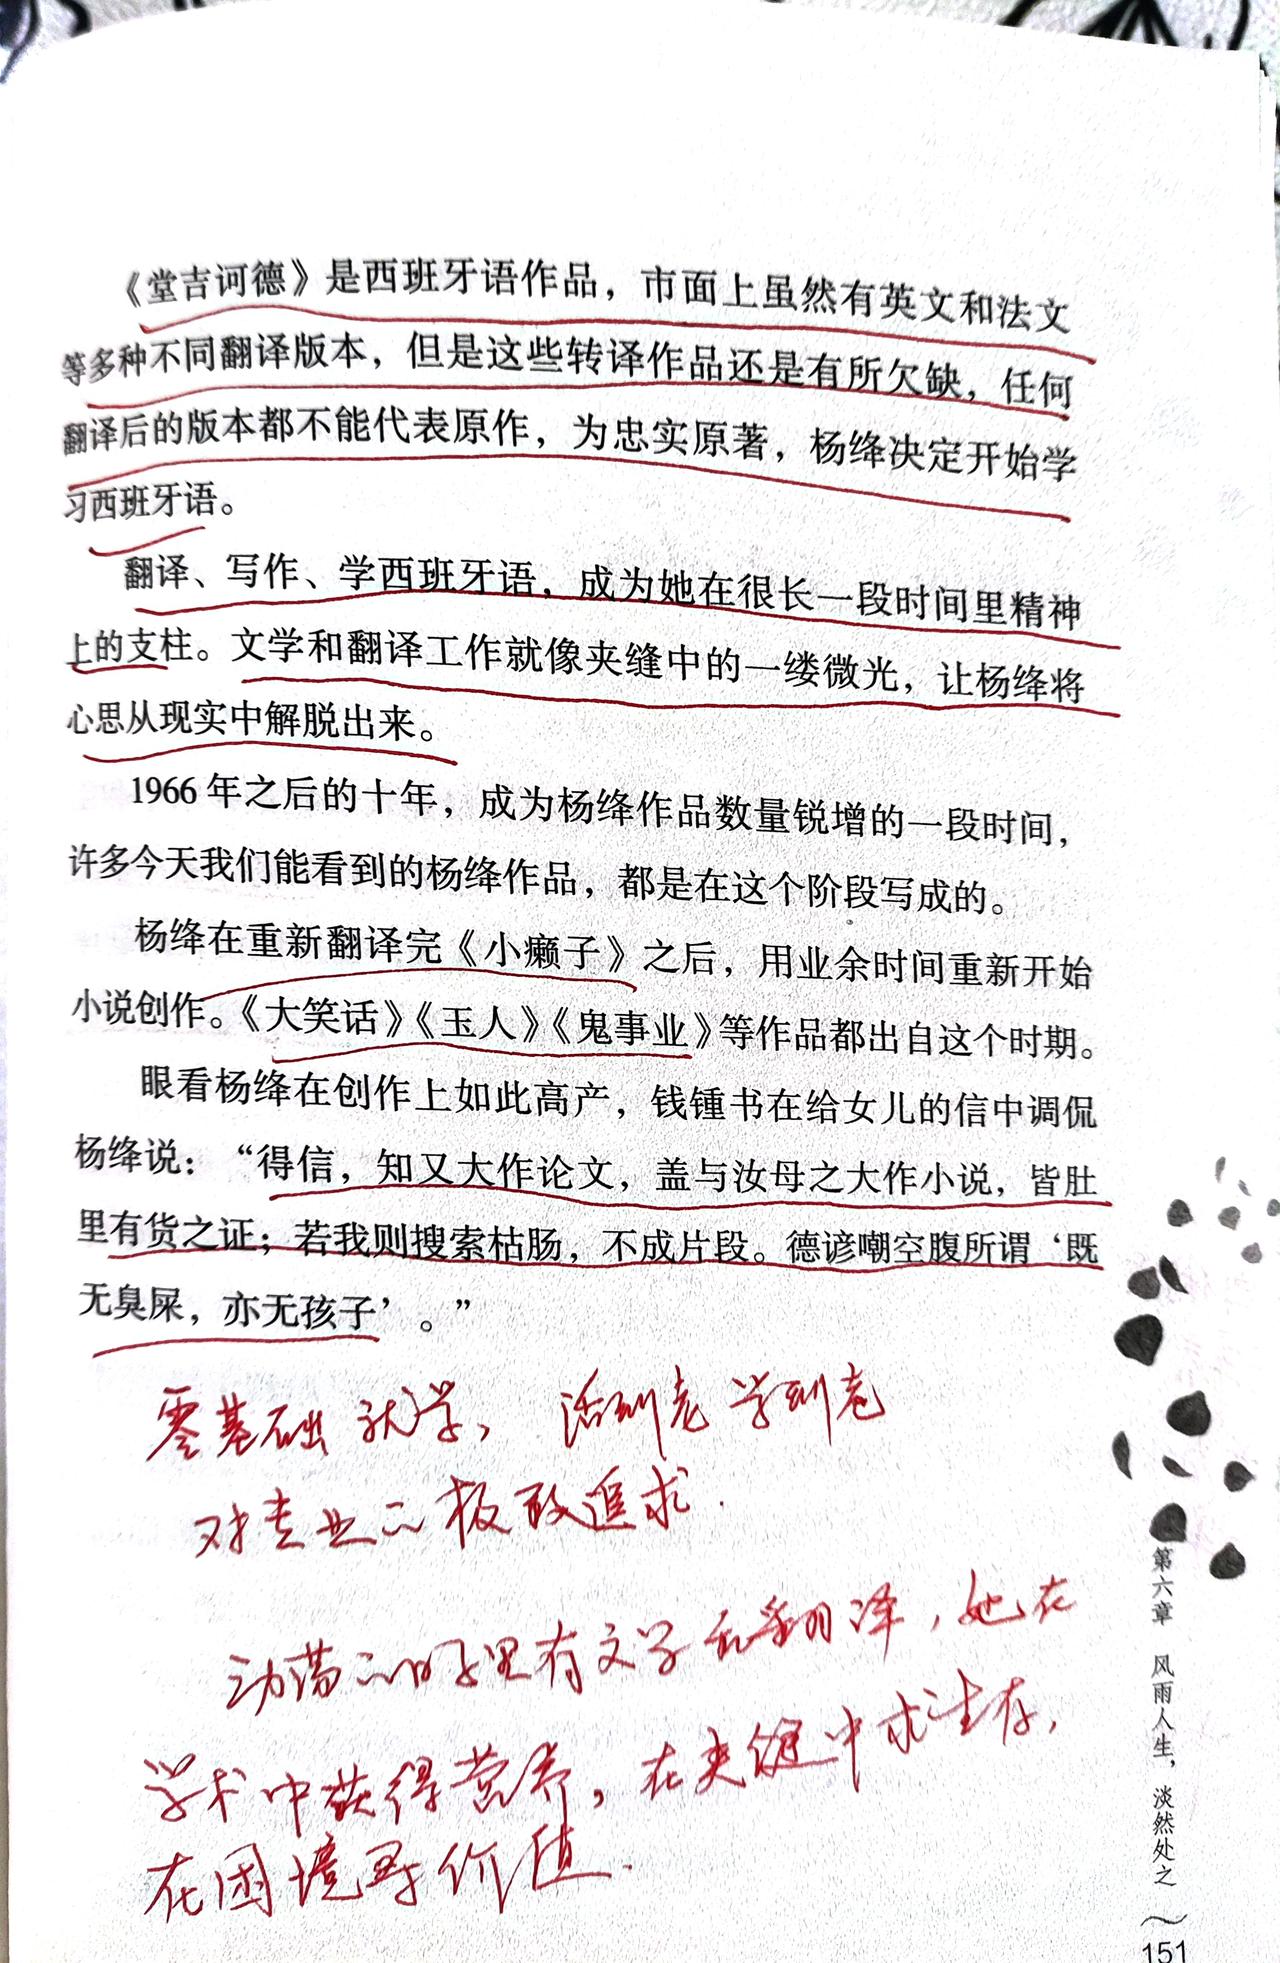 《堂吉诃德》是西班牙语作品，市面上虽然有英文和法文
等多种不同翻译版本，但是这些转译作品还是有所欠缺，任何
翻译后的版本都不能代表原作，为忠实原著，杨绛决定开始学
习西班牙语。
翻译、写作、学西班牙语，成为她在很长一段时间里精神
上的支柱。文学和翻译工作就像夹缝中的一缕微光，让杨绛将
心思从现实中解脱出来。
1966年之后的十年，成为杨绛作品数量锐增的一段时间，
许多今天我们能看到的杨绛作品，都是在这个阶段写成的。
杨绛在重新翻译完《小癞子》之后，用业余时间重新开始
小说创作。《大笑话》《玉人》《鬼事业》等作品都出自这个时期。
眼看杨绛在创作上如此高产，钱锺书在给女儿的信中调侃
杨绛说：“得信，知又大作论文，盖与汝母之大作小说，皆肚
里有货之证；若我则搜索枯肠，不成片段。德谚嘲空腹所谓‘既
无臭屎，亦无孩子’。”
零基础就学，活到老学到老
对专业的极致追求.
动荡的日子里有文学和翻译，她在
学术中获得营养，在夹缝中求生存，
在困境寻价值.
第六章 风雨人生，淡然处之
151